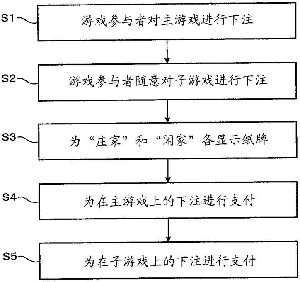 S1
游戏参与者对主游戏进行下注
S2
游戏参与者随意对子游戏进行下注
S3
为“庄家”和“闲家”各显示纸牌
S4
为在主游戏上的下注进行支付
S5
为在子游戏上的下注进行支付